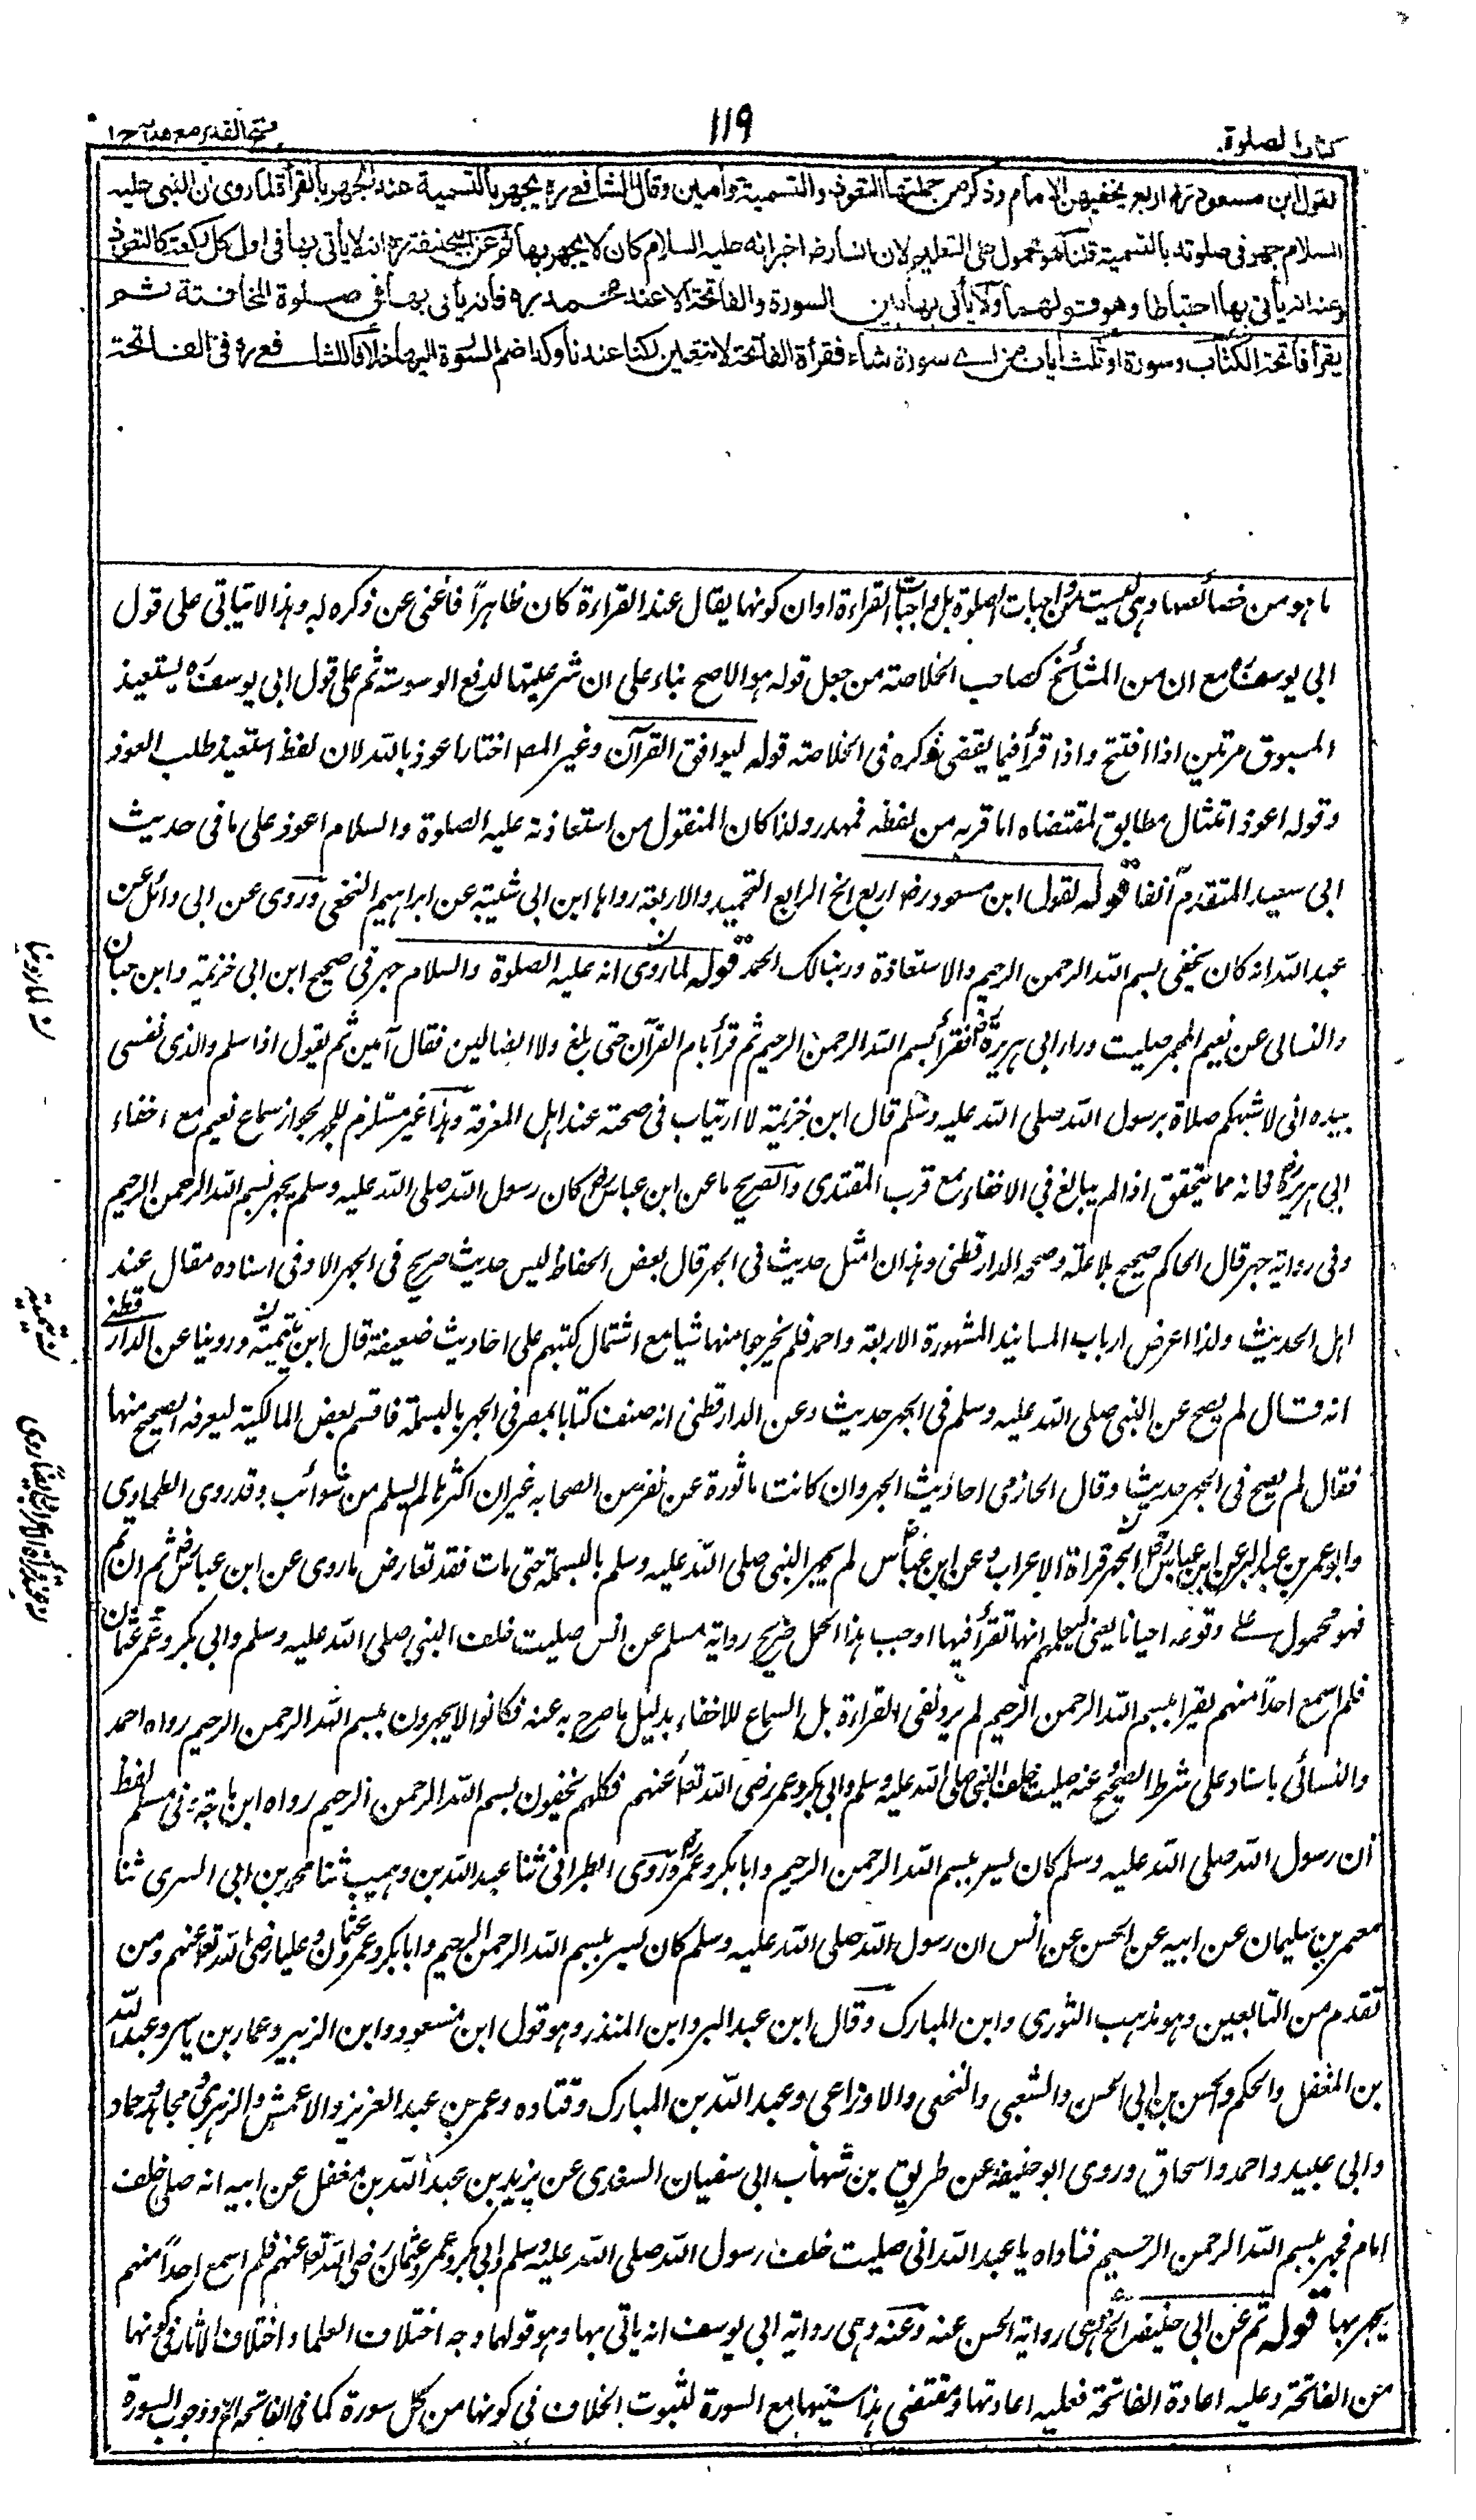 كتاب الصلوة
119
فتح القدير مع هدايه ج ١
لقول ابن مسعود رض اربع يخفيهن الامام وذكر من جملتها التعوذ والتسمية وأمين وقال الشافعے ره يجهر بالتسمية عند الجهر بالقرأة لما روى ان النبى عليه
السلام جهر فى صلوته بالتسمية قلنا هو محمول على التعليم لان انسا رض اخبر انه عليه السلام كان لا يجهر بها ثم عن ابى حنيفة ره انه لا يأتى بها فى اول كل ركعة كالتعوذ
وعنه انه يأتى بها احتياطا وهو قولهما ولا يأتى بها بين السورة والفاتحة الا عند محمد ره فانه يأتى بها فى صلوة المخافتة ثم
يقرأ فاتحة الكتاب وسورة او ثلث أيات من اے سورة شاء فقرأة الفاتحة لا تتعين ركنا عندنا وكذا ضم السورة اليها خلافا للشافعے ره فى الفاتحة
ما هو من خصائصها وهى ليست من واجبات الصلوة بل واجبات القراءة او ان كونها يقال عند القراءة كان ظاهراً فاغنى عن ذكره له وهذا لا يتاتى على قول
ابى يوسف ره مع ان من المشائخ كصاحب الخلاصة من جعل قوله هو الاصح بناء على ان شرعيتها لدفع الوسوسة ثم على قول ابى يوسف ره يستعيذ
المسبوق مرتين اذا افتتح واذا قرأ فيما يقضى ذكره فى الخلاصة قوله ليوافق القرآن وغير المص اختار اعوذ بالله لان لفظ استعيذ طلب العوذ
وقوله اعوذ امتثال مطابق لمقتضاه اما قربه من لفظه فمهدر ولذا كان المنقول من استعاذته عليه الصلوة والسلام اعوذ على ما فى حديث
ابى سعيد المتقدم آنفا قوله لقول ابن مسعود رض اربع الخ الرابع التحميد والاربعة رواها ابن ابى شيبة عن ابراهيم النخعى وروى عن ابى وائل عن
عبد الله انه كان يخفى بسم الله الرحمن الرحيم والاستعاذة وربنا لك الحمد قوله لما روى انه عليه الصلوة والسلام جهر فى صحيح ابن ابى خزيمة وابن حبان
والنسائى عن نعيم المجمر صليت وراء ابى هريرة رض فقرأ بسم الله الرحمن الرحيم ثم قرأ بام القرآن حتى بلغ ولا الضالين فقال آمين ثم يقول اذا سلم والذى نفسى
بيده انى لاشبهكم صلاة برسول الله صلى الله عليه وسلم قال ابن خزيمة لا ارتياب فى صحته عند اهل المعرفة وهذا غير مستلزم للجهر لجواز سماع نعيم مع اخفاء
ابى هريرة رض فانه مما يتحقق اذا لم يبالغ فى الاخفاء مع قرب المقتدى والصريح ما عن ابن عباس رض كان رسول الله صلى الله عليه وسلم يجهر ببسم الله الرحمن الرحيم
وفى رواية جهر قال الحاكم صحيح بلا علة وصححه الدارقطنى وهذان امثل حديث فى الجهر قال بعض الحفاظ ليس حديث صريح فى الجهر الا وفى اسناده مقال عند
اهل الحديث ولذا اعرض ارباب المسانيد المشهورة الاربعة واحمد فلم يخرجوا منها شيا مع اشتمال كتبهم على احاديث ضعيفة قال ابن تيمية وروينا عن الدار قطنے
انه قال لم يصح عن النبى صلى الله عليه وسلم فى الجهر حديث وعن الدارقطنى انه صنف كتابا بمصر فى الجهر بالبسملة فاقسم بعض المالكية ليعرفه الصحيح منها
فقال لم يصح فى الجهر حديث وقال الحازمى احاديث الجهر وان كانت ماثورة عن نفر من الصحابه غير ان اكثرها لم يسلم من شوائب وقد روى الطحاوى
وابو عمر بن عبد البر عن ابن عباس رض الجهر قراءة الاعراب وعن ابن عباس لم يجهر النبى صلى الله عليه وسلم بالبسملة حتى مات فقد تعارض ما روى عن ابن عباس رض ثم ان تم
فهو محمول على وقوعه احيانا يعنى ليعلمهم انها تقرأ فيها اوجب هذا الحمل صريح رواية مسلم عن انس صليت خلف النبى صلى الله عليه وسلم وابى بكر وعمر وعثمان
فلم اسمع احداً منهم يقرا ببسم الله الرحمن الرحيم لم يرد نفى القراءة بل السماع للاخفاء بدليل ما صرح به عنه فكانوا لا يجهرون ببسم الله الرحمن الرحيم رواه احمد
والنسائى باسناد على شرط الصحيح عنه صليت خلف النبى صلى الله عليه وسلم وابى بكر وعمر رضى الله تعا عنهم فكلهم يخفيون بسم الله الرحمن الرحيم رواه ابن ماجة وفى مسلم لفظ
ان رسول الله صلى الله عليه وسلم كان يسر ببسم الله الرحمن الرحيم وابا بكر وعمر وروى الطبرانى ثنا عبد الله بن وهيب ثنا محمد بن ابى السرى ثنا
معمر بن سليمان عن ابيه عن الحسن عن انس ان رسول الله صلى الله عليه وسلم كان يسر ببسم الله الرحمن الرحيم وابا بكر وعمر وعثمان وعليا رضى الله تعا عنهم ومن
تقدم من التابعين وهو مذهب الثورى وابن المبارك وقال ابن عبد البر وابن المنذر وهو قول ابن مسعود وابن الزبير وعمار بن ياسر وعبد الله
بن المغفل والحكم والحسن بن ابى الحسن والشعبى والنخعى والاوزاعى وعبد الله بن المبارك وقتاده وعمر بن عبد العزيز والاعمش والزهرى ومجاهد وحماد
وابى عبيد واحمد واسحاق وروى ابو حنيفة عن طريق بن شهاب ابى سفيان السعدى عن يزيد بن عبد الله بن مغفل عن ابيه انه صلى خلف
امام فجهر ببسم الله الرحمن الرحيم فناداه يا عبد الله انى صليت خلف رسول الله صلى الله عليه وسلم وابى بكر وعمر وعثمان رضى الله تعا عنهم فلم اسمع احداً منهم
يجهر بها قوله ثم عن ابى حنيفة الخ هى رواية الحسن عنه وعنه وهى رواية ابى يوسف انه ياتى بها وهو قولهما وجه اختلاف العلما واختلاف الاثار فى كونها
من الفاتحة وعليه اعادة الفاتحة فعليه اعادتها ومقتضى هذا سنيتها مع السورة لثبوت الخلاف فى كونها من كل سورة كما فى الفاتحة الخ ووجوب السورة
ن لما روينا
ن تيمية